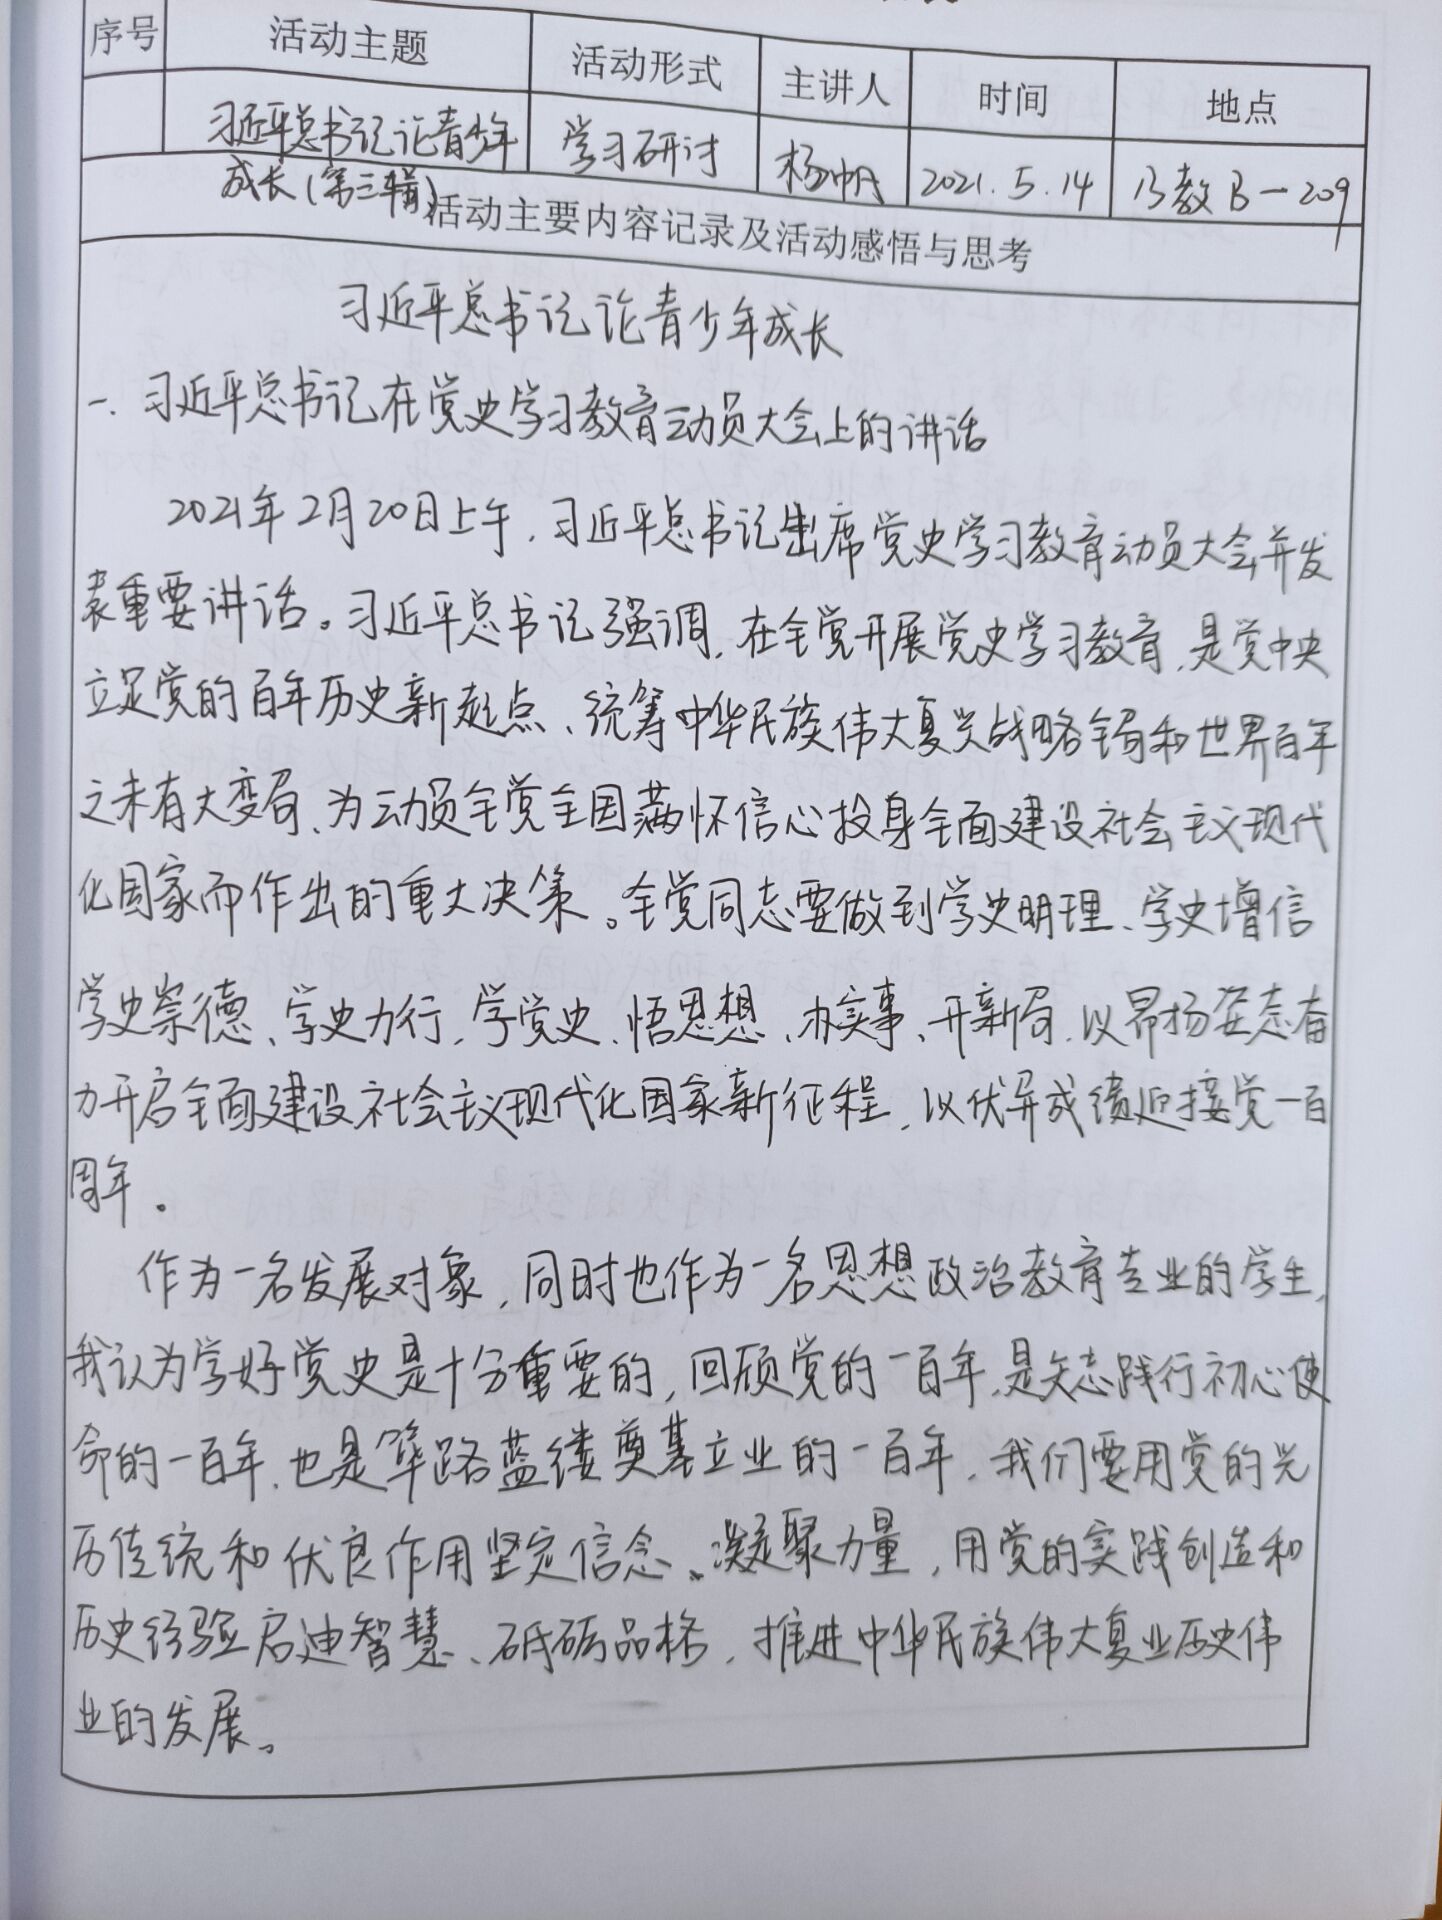 序号 活动主题 活动形式 主讲人 时间 地点
习近平总书记论青少年 学习研讨 杨帆 2021.5.14 乃教B-209
成长(第三辑)
活动主要内容记录及活动感悟与思考
习近平总书记论青少年成长
一.习近平总书记在党史学习教育动员大会上的讲话
2021年2月20日上午,习近平总书记出席党史学习教育动员大会并发
表重要讲话。习近平总书记强调,在全党开展党史学习教育,是党中央
立足党的百年历史新起点、统筹中华民族伟大复兴战略全局和世界百年
之未有大变局、为动员全党全国满怀信心投身全面建设社会主义现代
化国家而作出的重大决策。全党同志要做到学史明理、学史增信
学史崇德、学史力行,学党史、悟思想、办实事、开新局,以昂扬姿态奋
力开启全面建设社会主义现代化国家新征程,以优异成绩迎接党一百
周年。
作为一名发展对象,同时也作为一名思想政治教育专业的学生,
我认为学好党史是十分重要的,回顾党的一百年,是矢志践行初心使
命的一百年,也是筚路蓝缕奠基立业的一百年,我们要用党的光
历传统和优良作用坚定信念、凝聚力量,用党的实践创造和
历史经验启迪智慧、砥砺品格,推进中华民族伟大复业历史伟
业的发展。